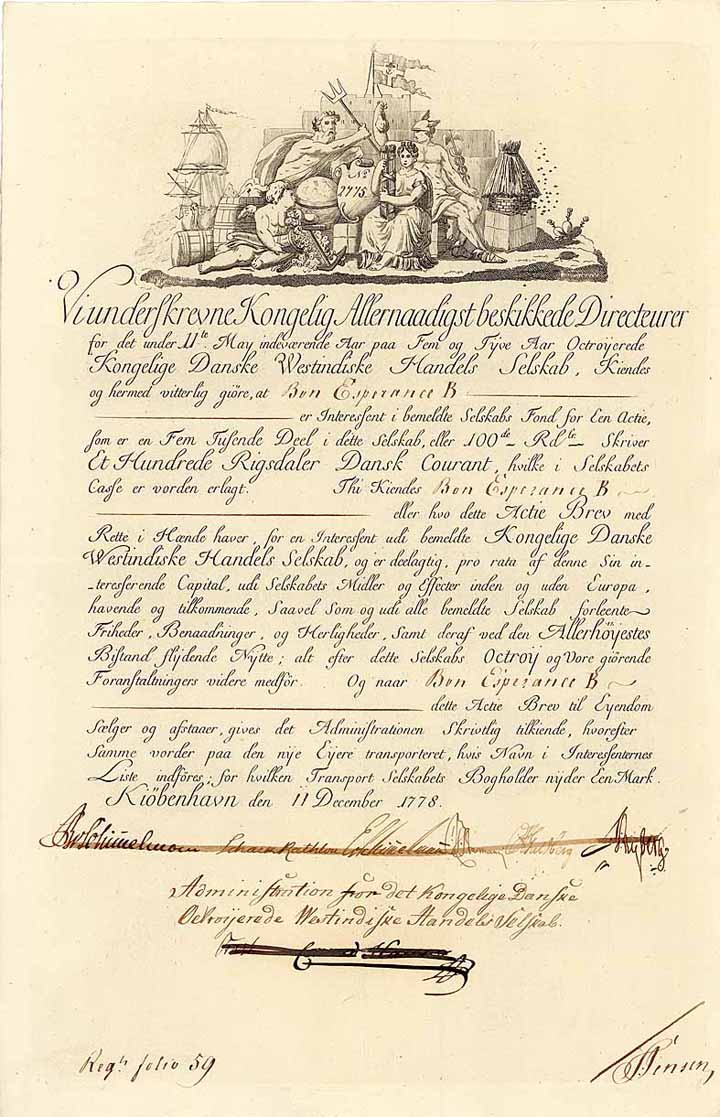 No
2775.
Vi underskrevne Kongelig Allernaadigst beskikkede Directeurer
for det under 11te May indeværende Aar paa Fem og Tyve Aar Octroyerede
Kongelige Danske Westindiske Handels Selskab, Kiendes
og hermed vitterlig giöre, at Bon Esperance B
er Interessent i bemeldte Selskabs Fond for Een Actie,
som er en Fem Tusende Deel i dette Selskab, eller 100de Rdlr Skriver
Et Hundrede Rigsdaler Dansk Courant, hvilke i Selskabets
Casse er vorden erlagt. Thi Kiendes Bon Esperance B
eller hvo dette Actie Brev med
Rette i Hænde haver, for en Interessent udi bemeldte Kongelige Danske
Westindiske Handels Selskab, og er deelagtig, pro rata af denne Sin in-
-teresserende Capital, udi Selskabets Midler og Effecter inden og uden Europa,
havende og tilkommende, Saavel Som og udi alle bemeldte Selskab forleente
Friheder, Benaadninger, og Herligheder, Samt deraf ved den Allerhöyestes
Bistand flydende Nytte; alt efter dette Selskabs Octroy og Vore giörende
Foranstaltningers videre medför. Og naar Bon Esperance B
dette Actie Brev til Eyendom
Sælger og afstaaer, gives det Administrationen Skrivtlig tilkiende, hvorefter
Samme vorder paa den nye Eyere transporteret, hvis Navn i Interessenternes
Liste indföres; for hvilken Transport Selskabets Bogholder nyder Een Mark.
Kiöbenhavn den 11 December 1778.
Schimmelmann Schack Rathlou Schimmelmann Ryberg
Administration for det Kongelige Danske
Octroijerede Westindiske Handels Selskab.
Regts folio 59
Jensen,